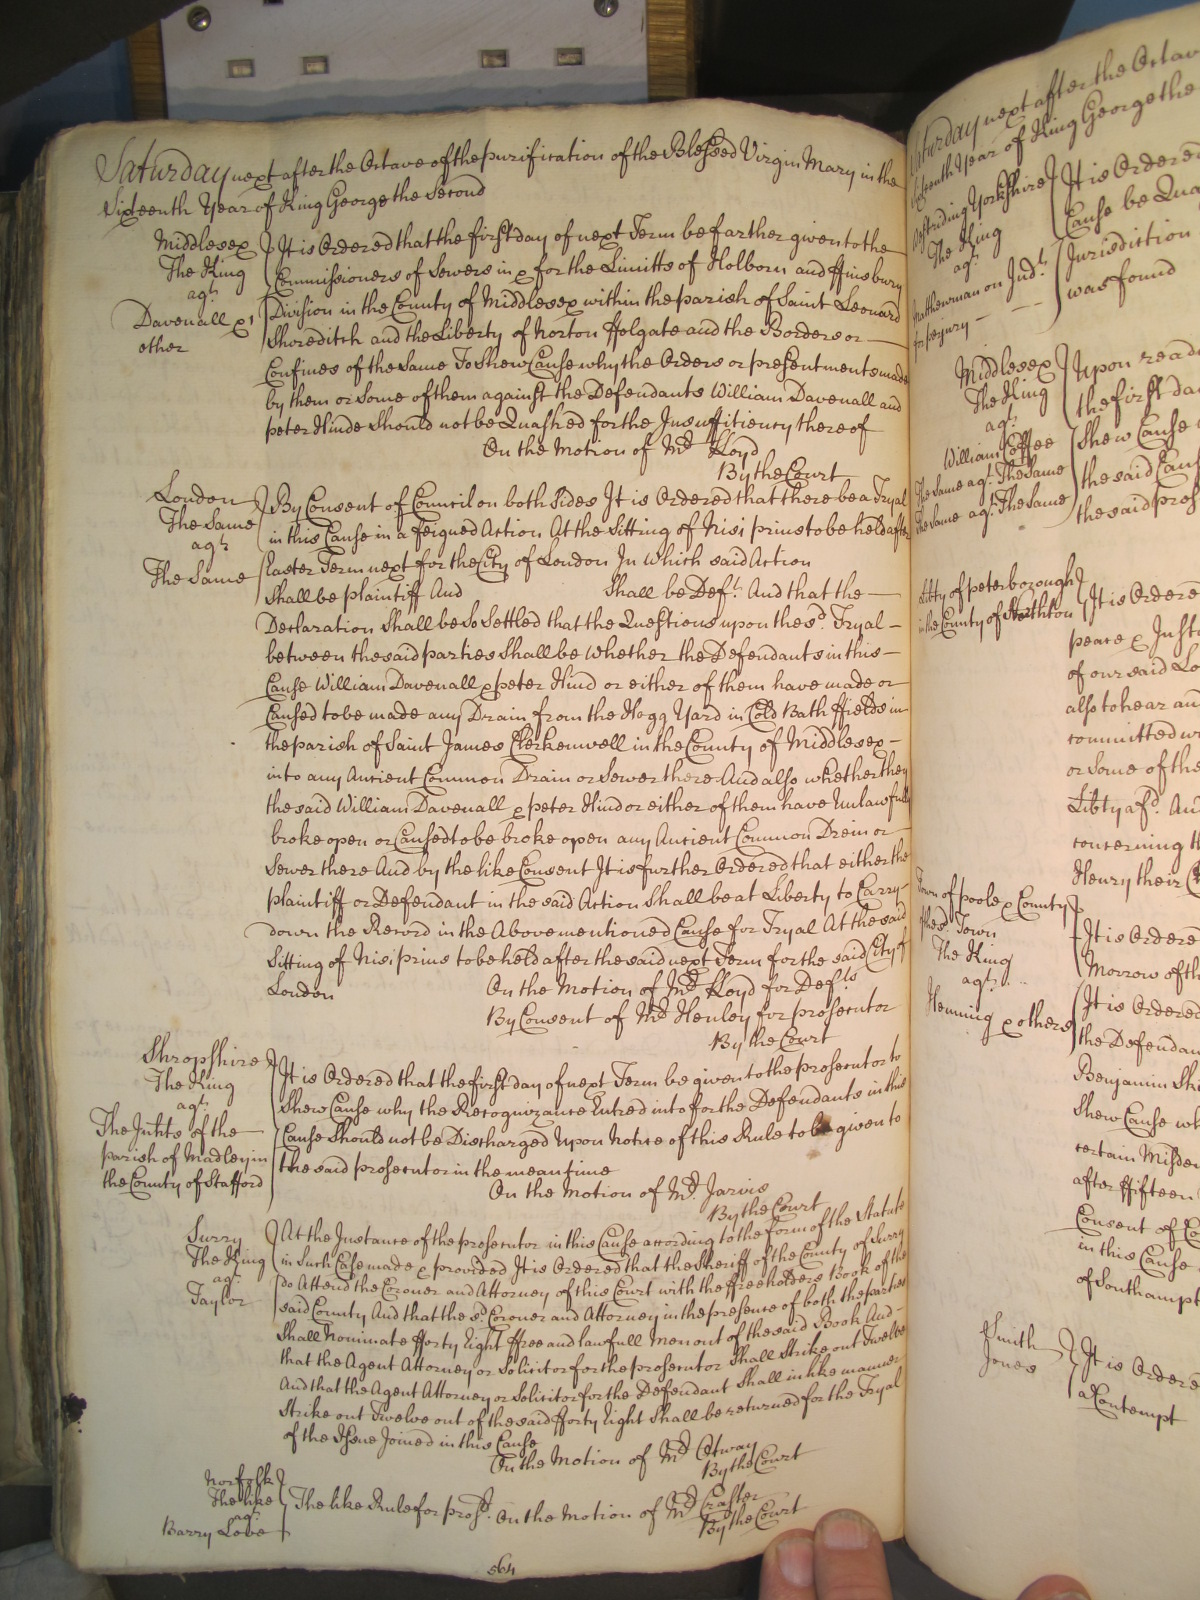 Saturday next after the Octave of the purification of the Blessed Virgin Mary in the
Sixteenth Year of King George the Second
Middlesex
The King
agt.
Davenall & 1
other
It is Ordered that the first day of next Term be farther given to the
Commissioners of Sewers in & for the Limitts of Holborn and ffinsbury
Division in the County of Middlesex within the parish of Saint Leonard
Shoreditch and the Liberty of Norton ffolgate and the Borders or
Confines of the Same To Shew Cause why the Orders or presentments made
by them or Some of them against the Defendants William Davenall and
peter Hinde Should not be Quashed for the Insufficiency thereof
On the Motion of Mr. Lloyd
By the Court
London
The Same
agt.
The Same
By Consent of Council on both Sides It is Ordered that there be a Tryal
in this Cause in a feigned Action At the Sitting of Nisi prius to be held after
Easter Term next for the City of London In which said Action
Shall be plaintiff And Shall be Deft. And that the
Declaration Shall be So Settled that the Questions upon the sd. Tryal
between the said parties Shall be Whether the Defendants in this
Cause William Davenall & peter Hind or either of them have made or
Caused to be made any Drain from the Hogg Yard in Cold Bath ffields in
the parish of Saint James Clerkenwell in the County of Middlesex
into any Ancient Common Drain or Sewer there And also whether they
the said William Davenall & peter Hind or either of them have Unlawfully
broke open or Caused to be broke open any Ancient Common Drain or
Sewer there And by the like Consent It is further Ordered that either the
plaintiff or Defendant in the said Action Shall be at Liberty to Carry
down the Record in the Abovementioned Cause for Tryal At the said
Sitting of Nisi prius to be held after the said next Term for the said City of
London
On the Motion of Mr. Lloyd for Defts.
By Consent of Mr. Henley for prosecutor
By the Court
Shropshire
The King
agt.
The Inhts of the
parish of Madley in
the County of Stafford
It is Ordered that the first day of next Term be given to the prosecutor to
Shew Cause why the Recognizance Entred into for the Defendants in this
Cause Should not be Discharged Upon Notice of this Rule to be given to
the said prosecutor in the mean time
On the Motion of Mr. Jarvis
By the Court
Surry
The King
agt.
Taylor
At the Instance of the prosecutor in this Cause according to the form of the Statute
in Such Case made & provided It is Ordered that the Sheriff of the County of Surry
do Attend the Coroner and Attorney of this Court with the ffreeholders Book of the
said County And that the sd. Coroner and Attorney in the presence of both the parties
Shall Nominate fforty Eight ffree and lawfull Men out of the said Book And
that the Agent Attorney or Solicitor for the prosecutor Shall Strike out Twelve
And that the Agent Attorney or Solicitor for the Defendant Shall in like manner
Strike out Twelve out of the said fforty Eight Shall be returned for the Tryal
of the Issue Joined in this Cause
On the Motion of Mr. Otway
By the Court
Norfolk
The like
agt.
Barry Love
The like Rule for prosr. On the Motion of Mr. Crafter
By the Court
564
Saturday next after the Octave
Sixteenth Year of King George the
Westriding Yorkshire
The King
agt.
Matthewman on Indt.
for perjury
It is Ordered
Cause be Qua
Jurisdiction
was found
Middlesex
The King
agt.
William Coffee
The Same agt. The Same
The Same agt. The Same
Upon read
the first da
Shew Cause
the said Caus
the said pros
Libty of peterborough
in the County of Northton
It is Ordered
peace & Justi
of our said Lo
also to hear an
committed w
or Some of the
Libty afd. An
concerning th
Henry their
Town of poole & County
of the sd. Town
The King
agt.
Henning & others
It is Ordered
Morrow of th
It is Ordered
the Defendan
Benjamin Ski
Shew Cause wh
certain Misde
after ffifteen
Consent of Co
in this Cause
of Southampt
Smith
Jones
It is Ordered
a Contempt